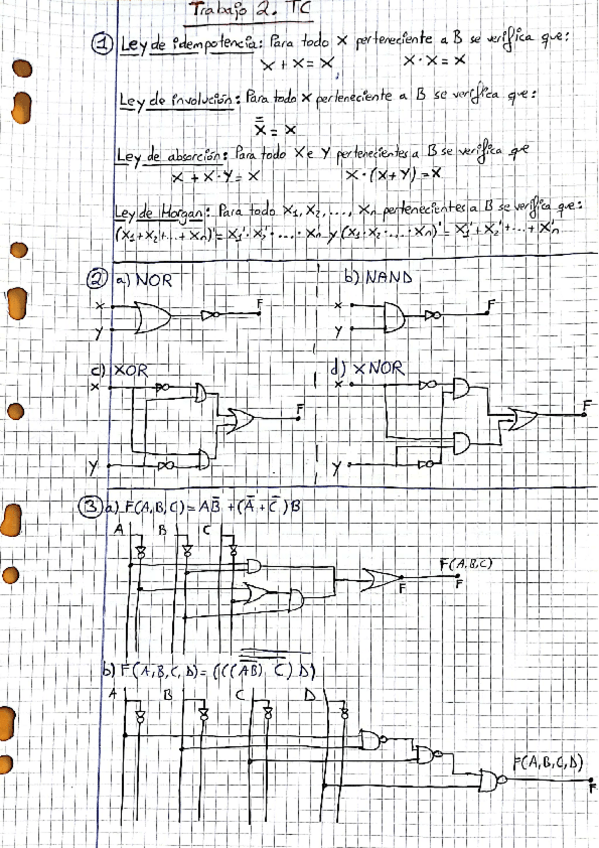 Trabajo 2. TC
① Ley de idempotencia: Para todo x perteneciente a B se verifica que:
x + x = x, x · x = x
Ley de involución: Para todo x perteneciente a B se verifica que:
x̿ = x
Ley de absorción: Para todo x e y pertenecientes a B se verifica que
x + x · y = x x · (x+y) = x
Ley de Morgan: Para todo x₁, x₂, ..., xₙ pertenecientes a B se verifica que:
(x₁+x₂+...+xₙ)' = x₁'·x₂'·...·xₙ y (x₁·x₂·...·xₙ)' = x₁'+x₂'+...+xₙ'
② a) NOR b) NAND
x F x F
y y
c) XOR d) XNOR
x F x F
y y
③ a) F(A,B,C) = AB̅ + (A̅ + C̅)B
A B C
F(A,B,C)
F F
b) F(A,B,C,D) = (((AB) C) D)
A B C D
F(A,B,C,D)
F